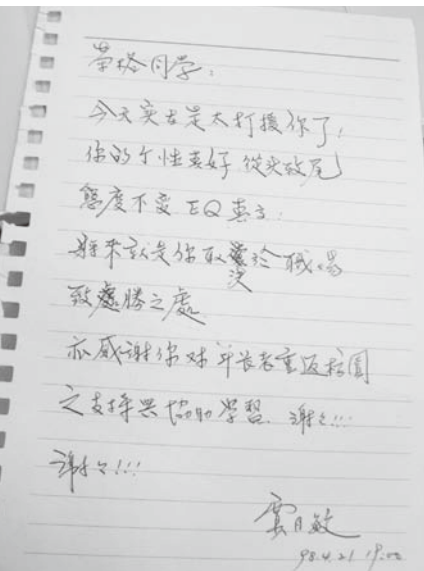 荣裕同学：
今天实在是太打擾你了，
你的个性真好 從头致尾
態度不变 EQ真高.
將来就是你取決於職場
致處勝之處
亦感谢你对年长者重返校園
之支持與協助学習. 谢々!!!
谢々!!!
雲月敏
98.4.21 19:00